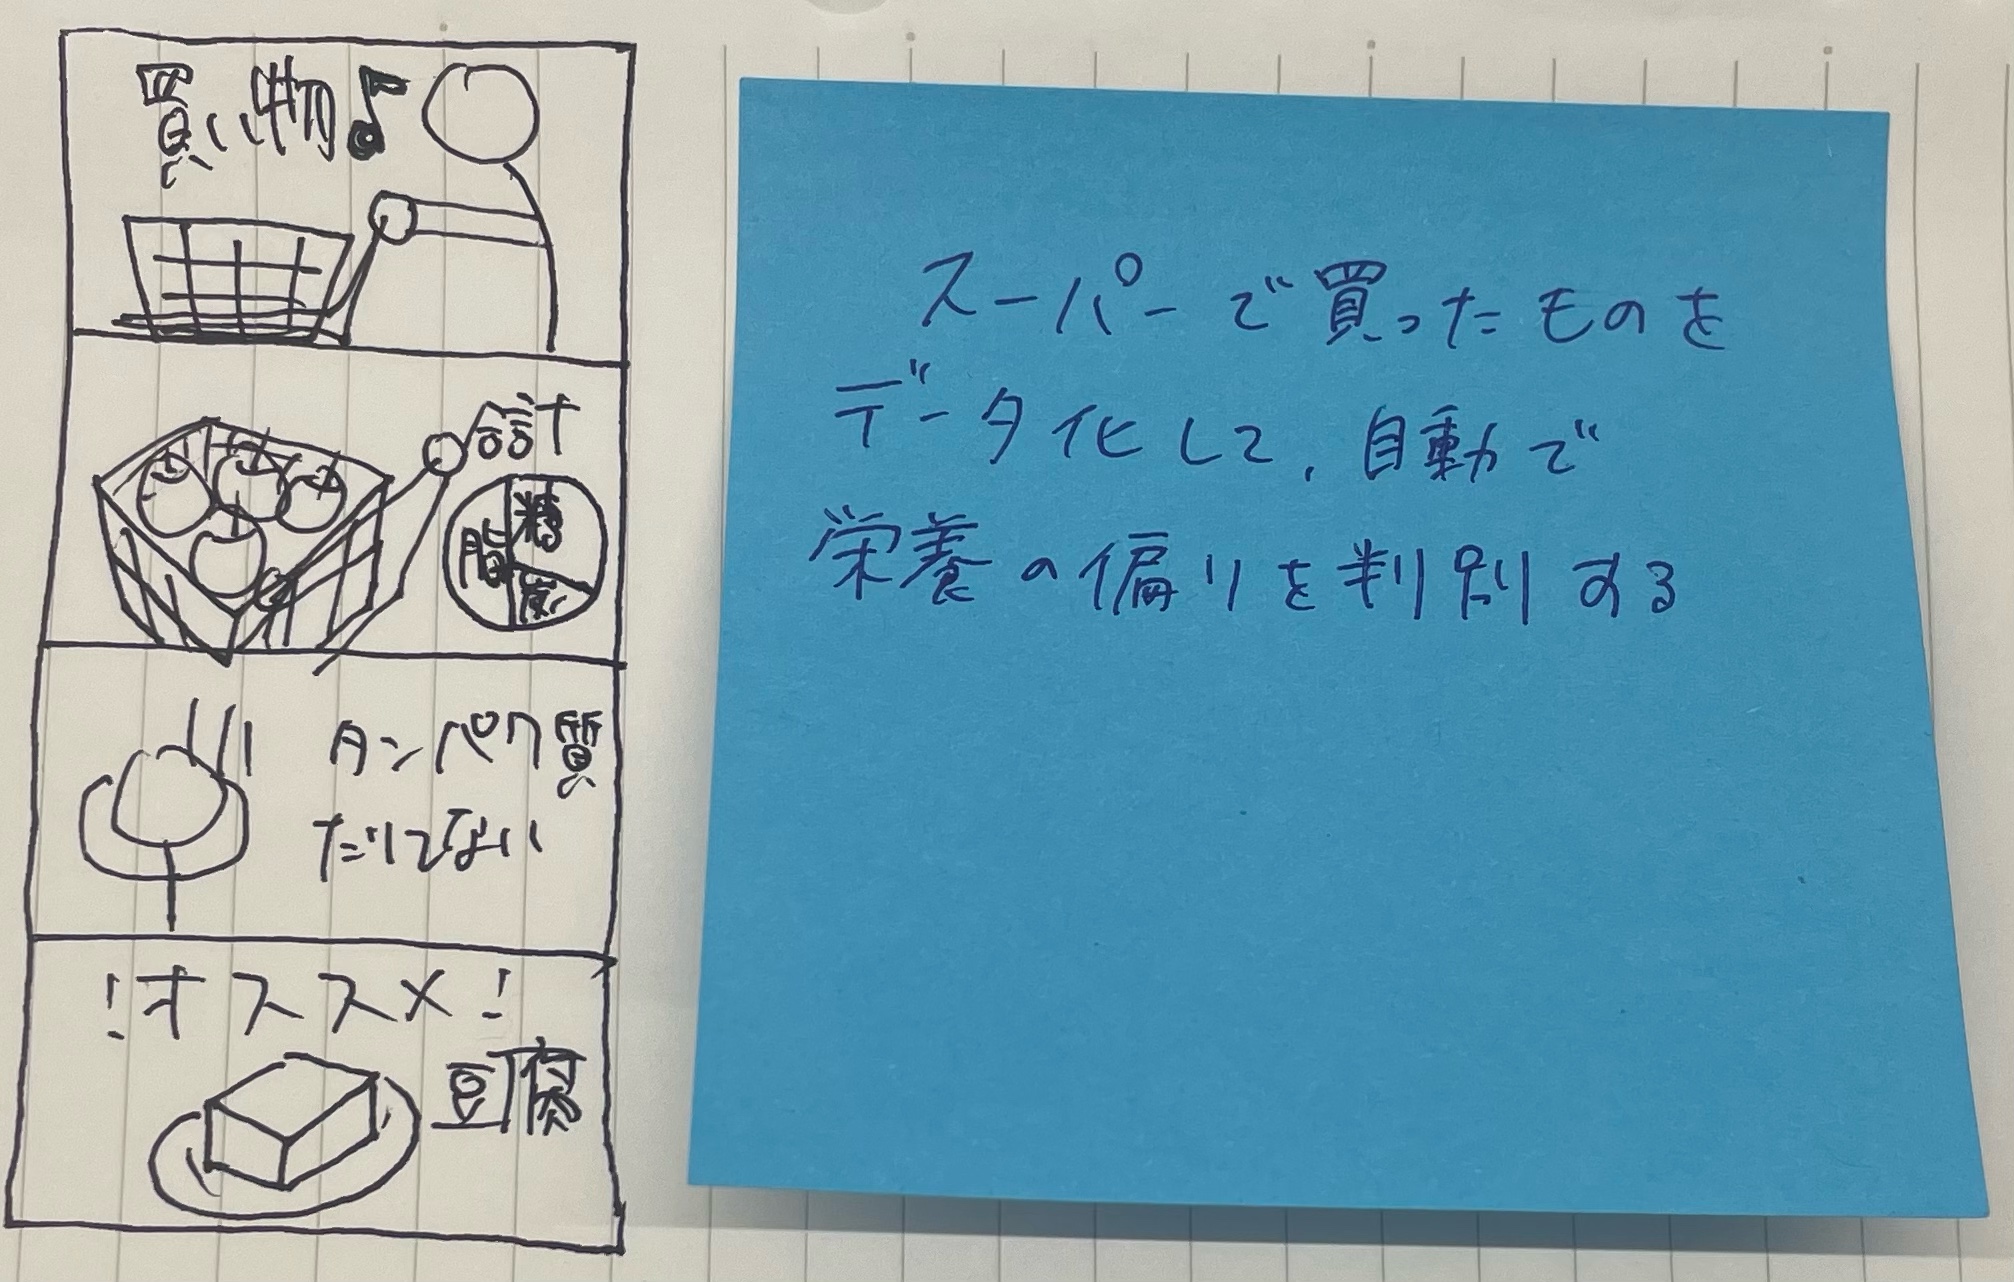 買い物♪
合計
脂
糖
炭
タンパク質
たりてない
！オススメ！
豆腐
スーパーで買ったものを
データ化して、自動で
栄養の偏りを判別する